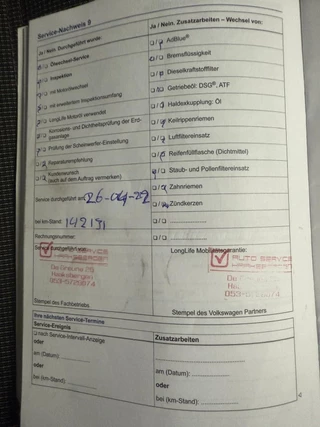 Service-Nachweis 9
Ja / Nein. Durchgeführt wurde:
Ölwechsel-Service
Inspektion
mit Motorölwechsel
mit erweitertem Inspektionsumfang
LongLife Motoröl verwendet
Korrosions- und Dichtheitsprüfung der
Prüfung der Scheinwerfer-Einstellung
Reparaturempfehlung
Kundenwunsch
(auch auf dem Auftrag vermerken)
Service durchgeführt am: 26-04-22
bei km-Stand:
Rechnungsnummer:
Service durchgeführt
AUTO SERVICE
Stempel des Fachbetriebs
Ja / Nein. Zusatzarbeiten – Wechsel von:
AdBlue®
Bremsflüssigkeit
Dieselkraftstofffilter
Getriebeöl: DSG®, ATF
Haldexkupplung: Öl
Keilrippenriemen
Luftfiltereinsatz
Reifenfüllflasche (Dichtmittel)
Staub- und Pollenfiltereinsatz
Zahnriemen
Zündkerzen
LongLife Mobilitätsgarantie:
AUTO SERVICE
Stempel des Volkswagen Partners
Ihre nächsten Service-Termine
Service-Ereignis
nach Service-Intervall-Anzeige
oder
am (Datum):
oder
bei (km-Stand):
Zusatzarbeiten
am (Datum):
oder
bei (km-Stand):